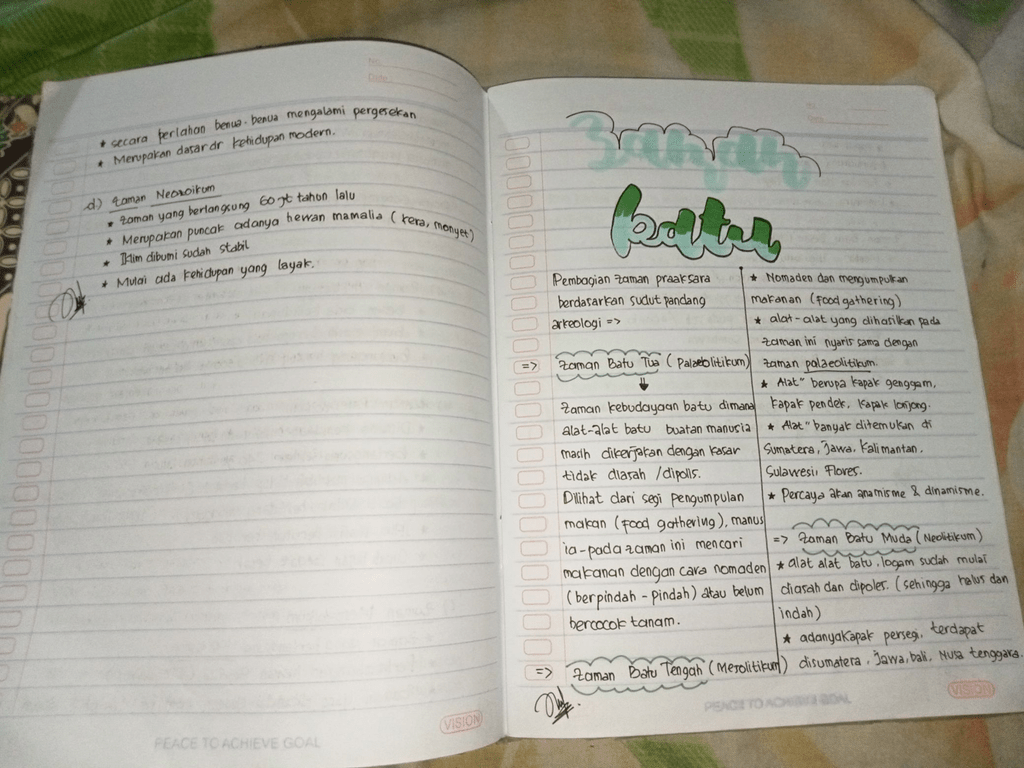 No.
Date
* secara perlahan benua-benua mengalami pergesekan
* Merupakan dasar dr kehidupan modern.
d) Zaman Neozoikum
* Zaman yang berlangsung 60 jt tahun lalu
* Merupakan puncak adanya hewan mamalia (kera, monyet)
* Iklim dibumi sudah stabil
* Mulai ada kehidupan yang layak.
VISION
PEACE TO ACHIEVE GOAL
Zaman
batu
Pembagian zaman praaksara
berdasarkan sudut pandang
arkeologi =>
=> Zaman Batu Tua (Palaeolitikum)
Zaman kebudayaan batu dimana
alat-alat batu buatan manusia
masih dikerjakan dengan kasar
tidak diasah /dipolis.
Dilihat dari segi pengumpulan
makan (food gathering), manus
ia-pada zaman ini mencari
makanan dengan cara nomaden
(berpindah-pindah) atau belum
bercocok tanam.
=> Zaman Batu Tengah (Mesolitikum)
* Nomaden dan mengumpulkan
makanan (food gathering)
* alat-alat yang dihasilkan pada
zaman ini nyaris sama dengan
zaman palaeolitikum.
* Alat" berupa kapak genggam,
kapak pendek, kapak lonjong.
* Alat" banyak ditemukan di
Sumatera, Jawa, Kalimantan.
Sulawesi, Flores.
* Percaya akan anamisme & dinamisme.
=> Zaman Batu Muda (Neolitikum)
* alat alat batu, logam sudah mulai
diasah dan dipoles. (sehingga halus dan
indah)
* adanya kapak persegi, terdapat
disumatera, Jawa, bali, Nusa tenggara.
PEACE TO ACHIEVE GOAL
VISION